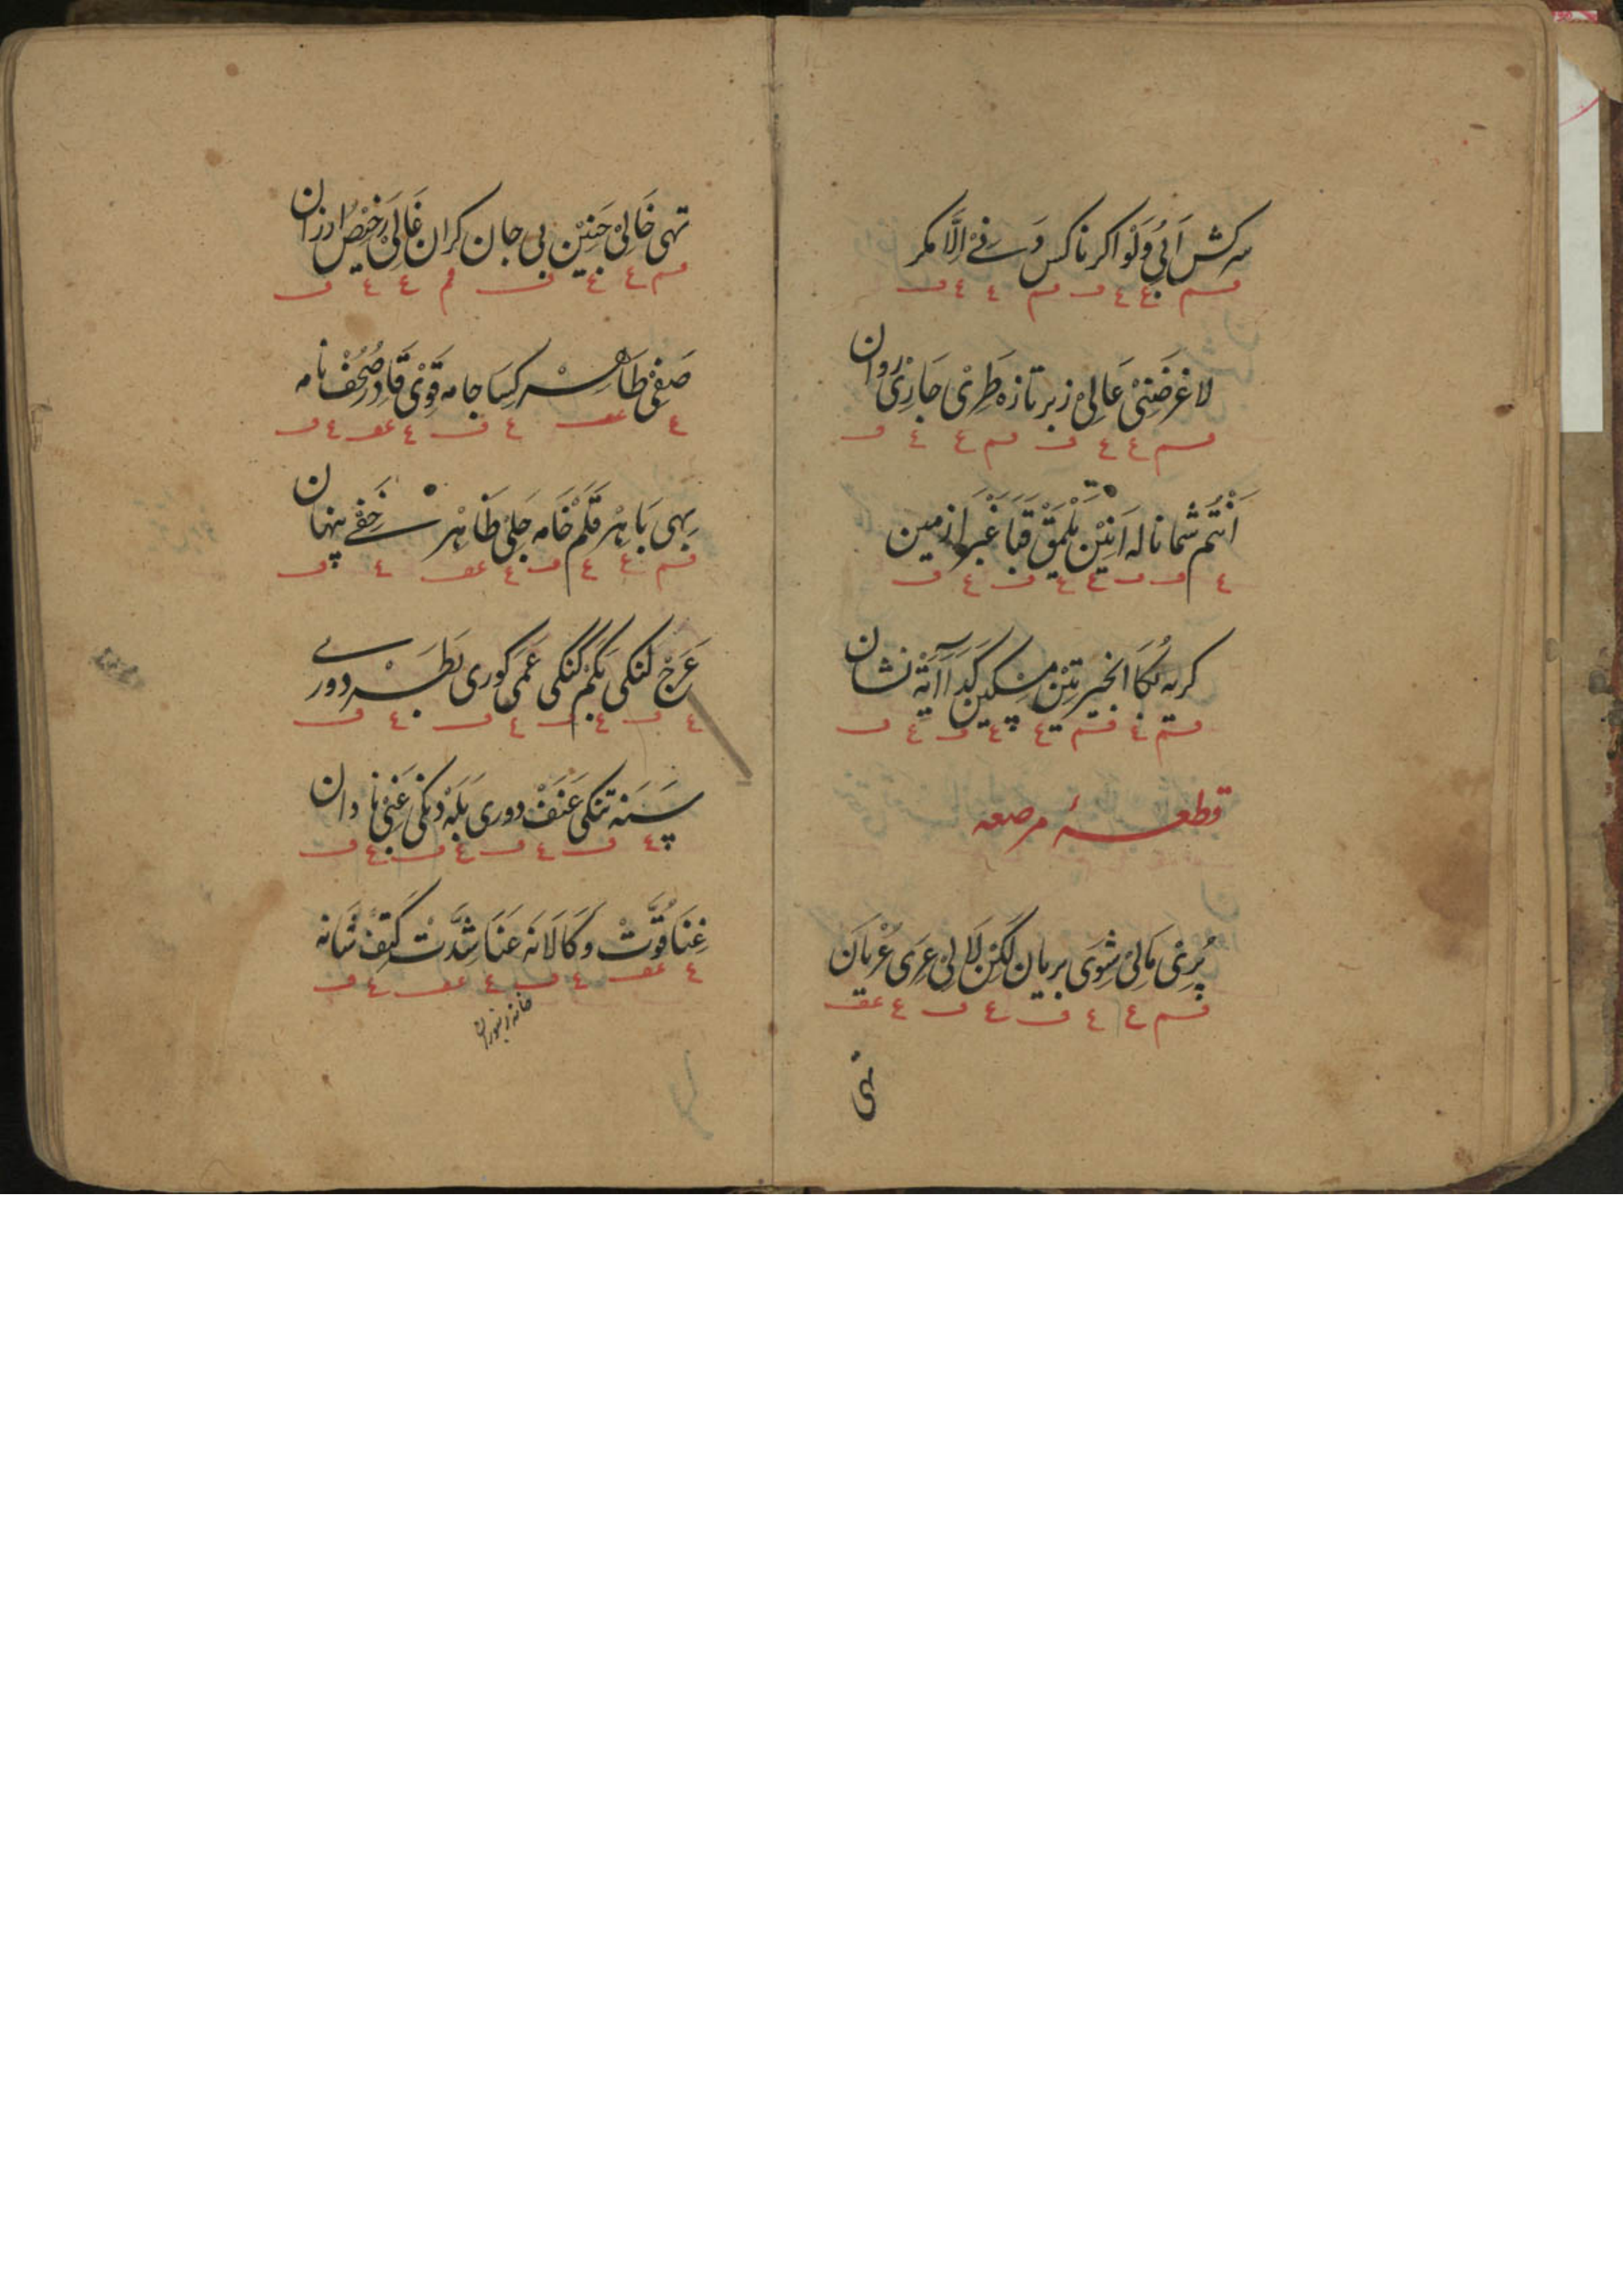 سرکش اَبِیْ وَلَوْ اکر ناکس دَنِے اِلَّا مکر
ف م ع ع ف ف م ع ع ف
لاغر ضَنِیْ عَالِیْ زبر تازه طَرِیْ جَارِیْ روان
ف م ع ع ف ف م ع ع ف
اَنْتُمْ شما ناله اَنِیْن یَلْمَقْ قَبَا غَبْرَا زمین
ع ف ف ع ع ف ع ف
کربه لُکَا الخیر تِیْن مِسْکین کَدَا آیَةْ نشان
ف م ع ف م ع ع ف ع ف
قطعهٔ مرصعه
پُرِیْ مَالِیْ شِوَی بریان لَکِنْ لَالِیْ عَرِی عُرْیَان
ف م ع ع ف ع ف ع عف
تهی
تهی خَالِیْ جَنِیْن بی جان کران غَالِیْ رَخِیْصْ ارزان
ف م ع ع ف ف م ع ع ف
صَفِیْ طَاهِرْ کِسَا جامه قَوِیْ قَادِرْ صُحُفْ نامه
ع عف ع ف ع عف ع ف
بِهِی بَاهِرْ قَلَمْ خَامه جَلِیْ ظَاهِرْ خَفِے پنهان
ف م ع ع ف ع عف ع ف
عَرَجْ لنکی بَکَمْ گنگی عَمَی کوری بَطَرْ دورے
ع ف ع ف ع ف ع ف
سَنَه تنکی عَنَفْ دوری بَلَهْ دنکی غَبِیْ نادان
ع ف ع ف ع ف ع ف
غِنَا قُوَّتْ وَکَا لَانَه عَنَا شِدَّتْ کَتِفْ شَانه
ع عف ع ف ع عف ع ف
خانه زنبوران